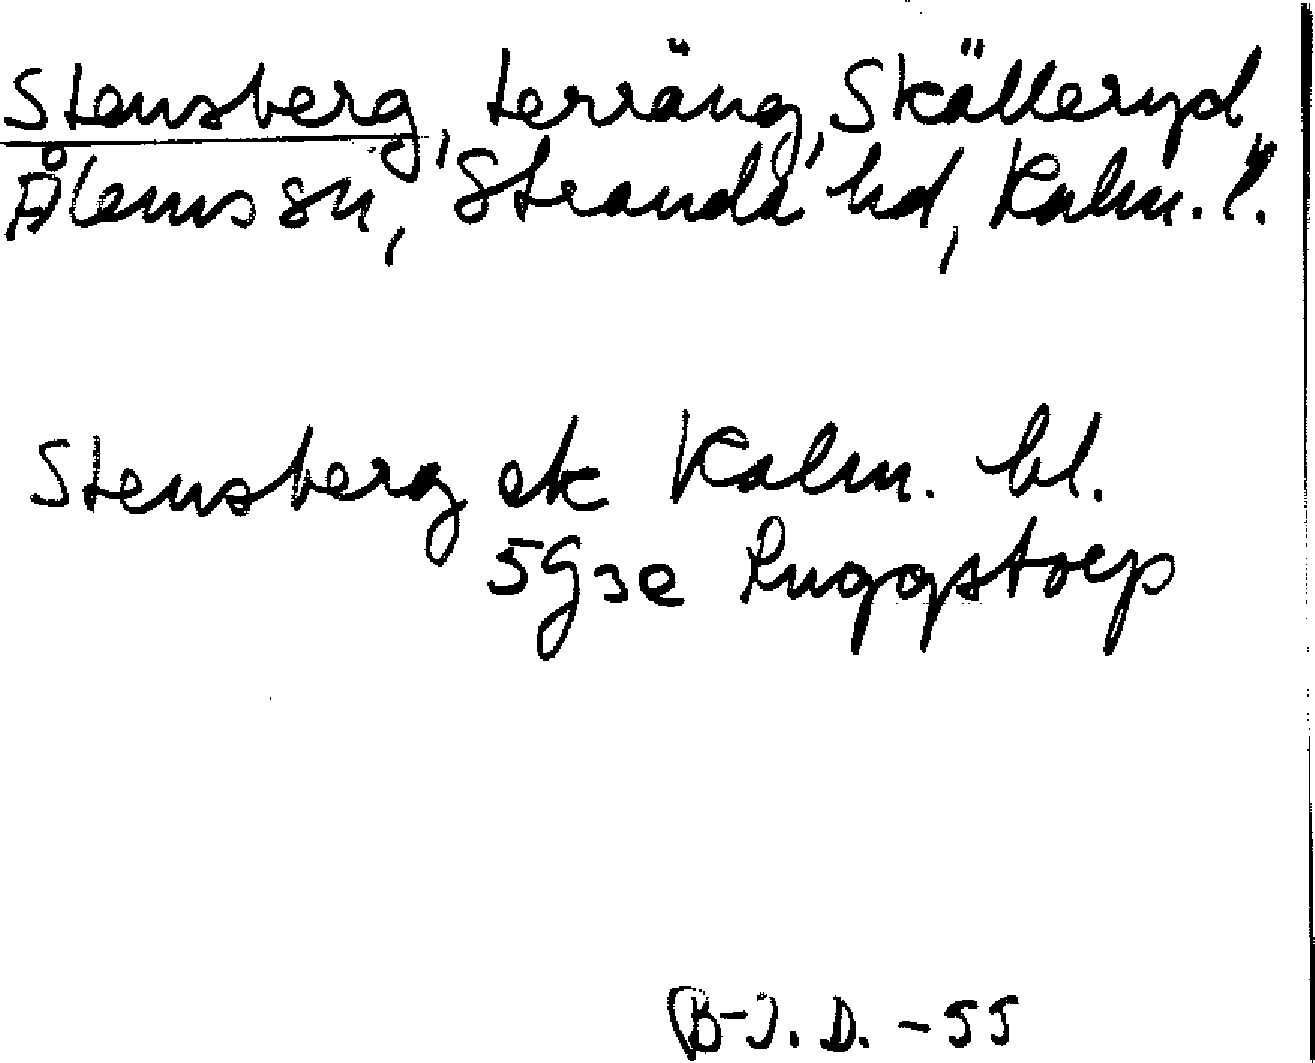 Stensberg, terräng, Skälleryd,
Ålems sn, Stranda hd, Kalm. l.
Stensberg ek Kalm. bl.
5G3e Ruggstorp
B-J. D. -55